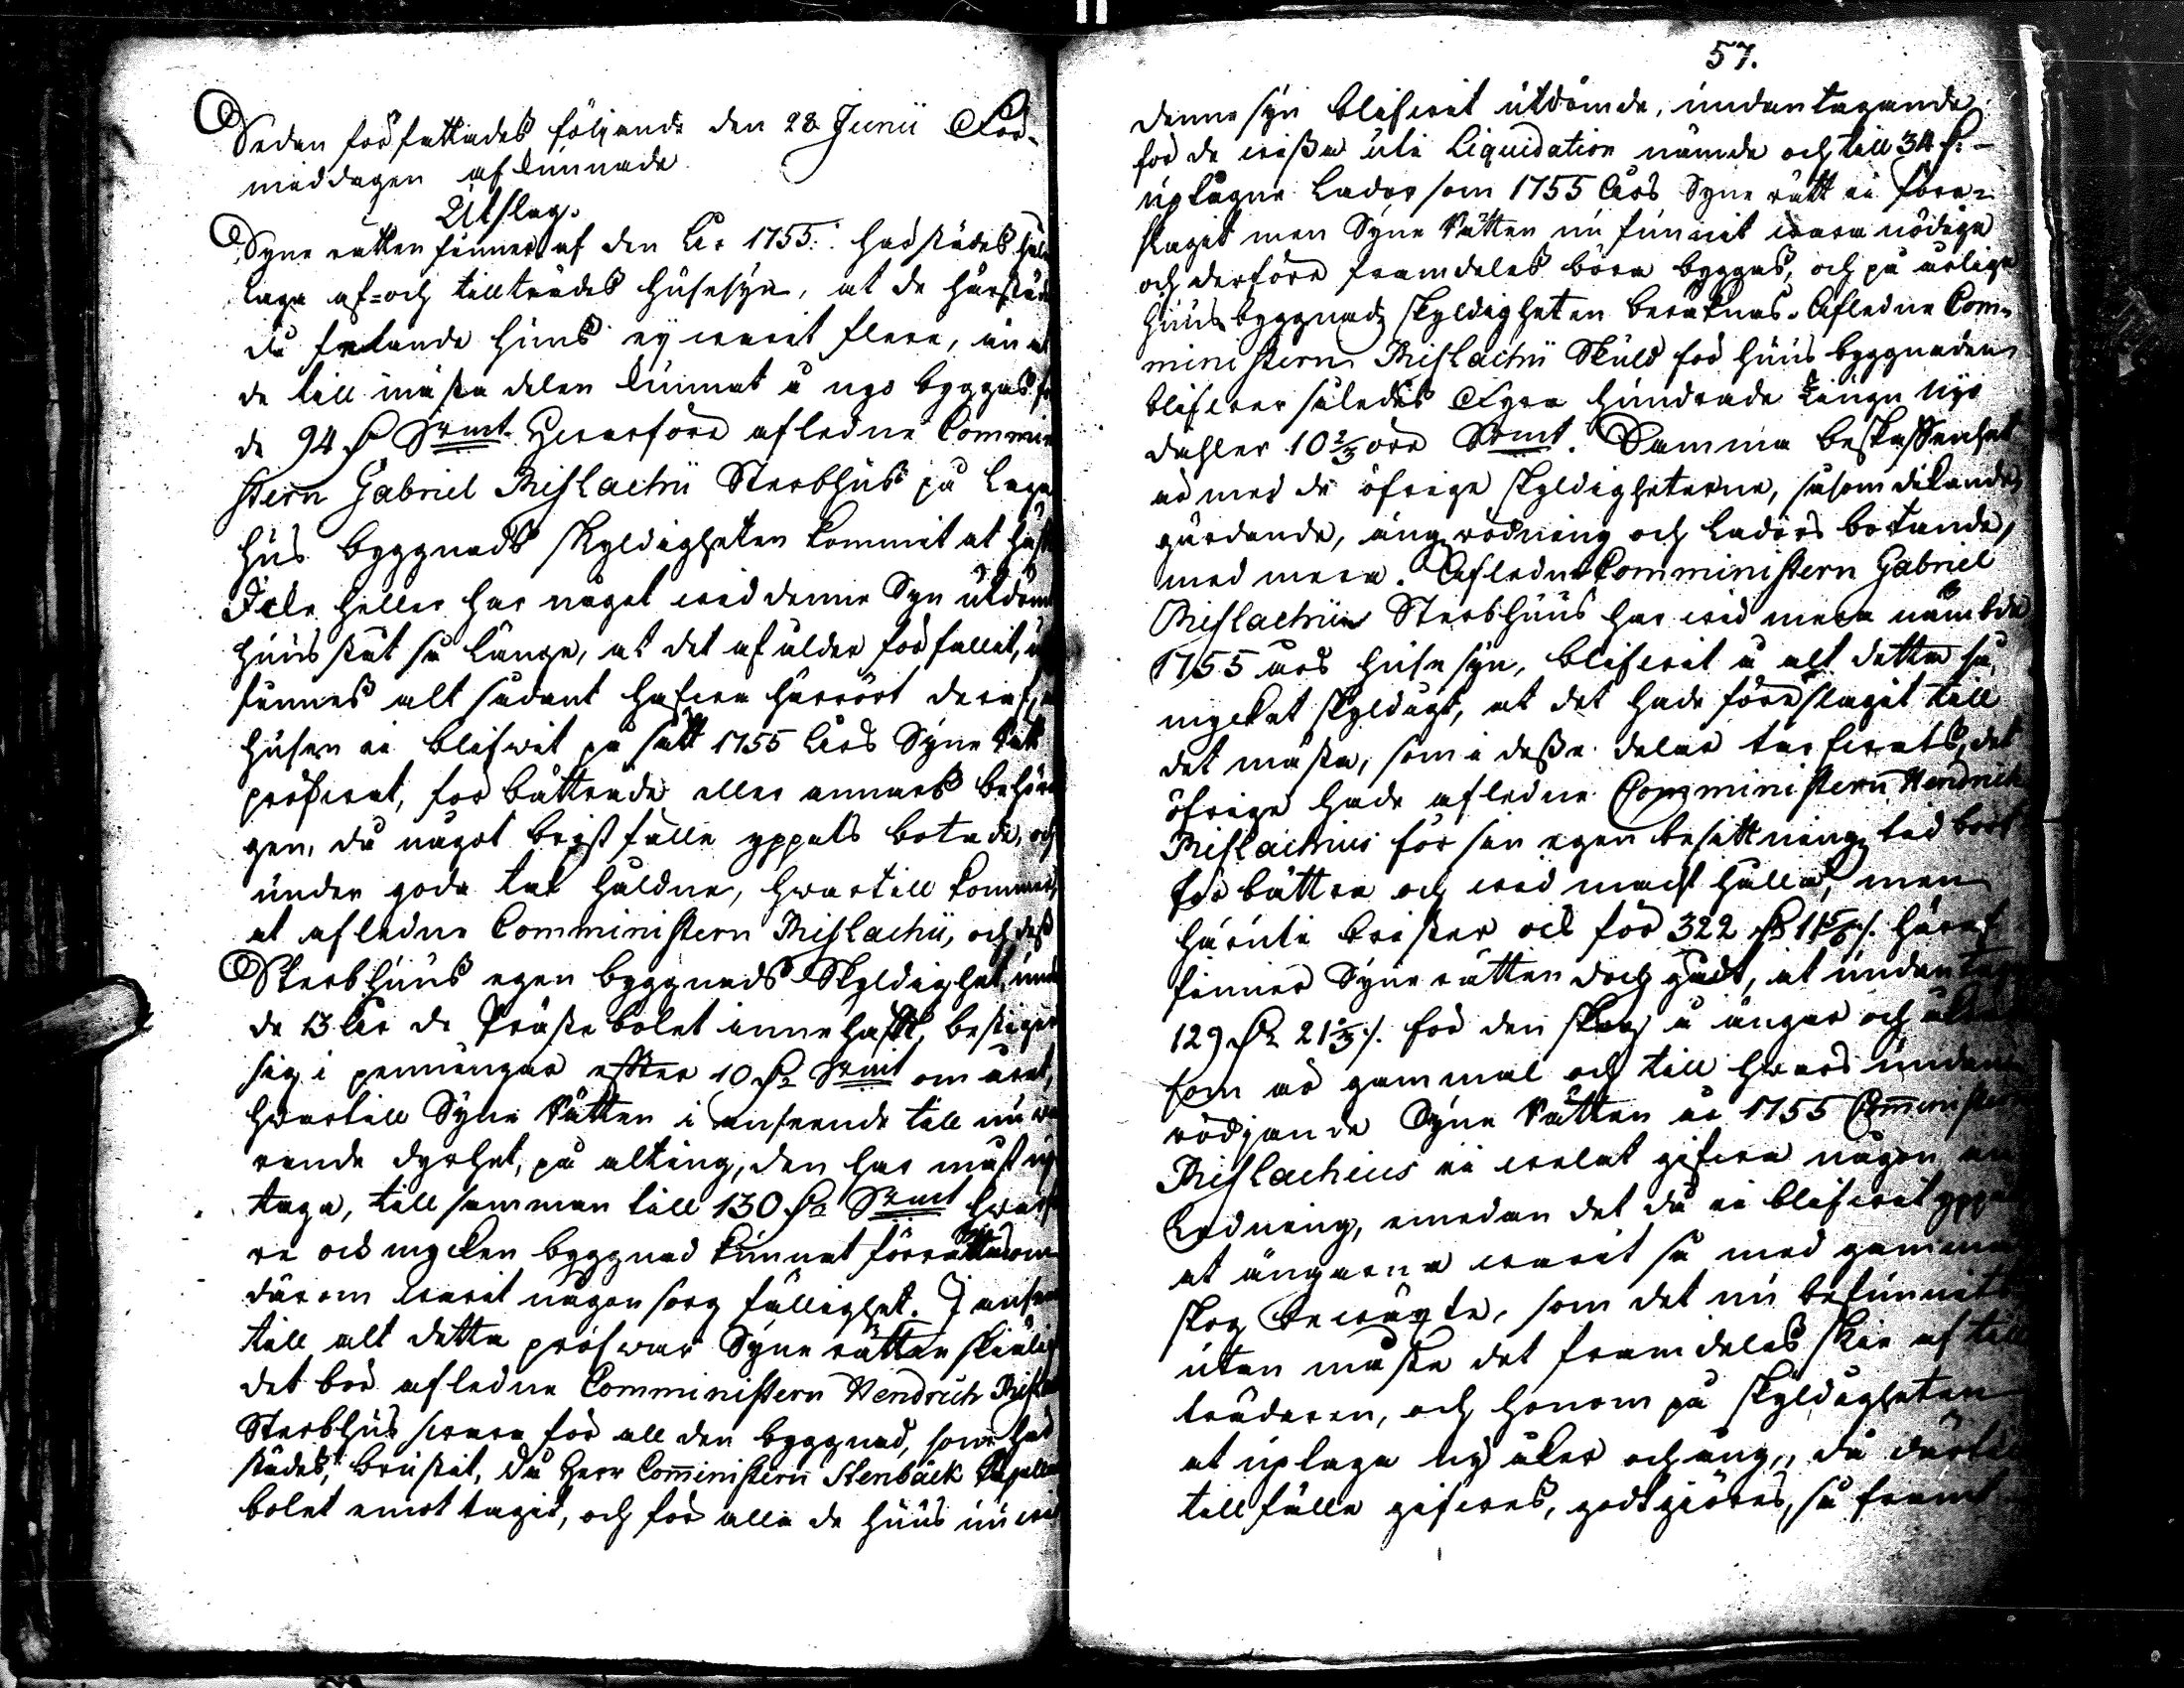 Sedan författades följande den 28 Junii För-
middagen afkunnade
Utslag.
Syne rätten finner af den År 1755. härstädes håln
laga af= och tillträdes husesyn, at de härstäd
då felande huus ey warit flere, än at
de till mästa delen kunnat å nyo byggas för
de 94 Dr Srmt. Hwarföre afledne Commi
stern Gabriel Rislachii Sterbhus på laga
hus byggnads skyldigheten kommit at häft
Icke heller har något wid denne Syn utdömt
huus ståt så länge, at det af ålder förfallit, ut
finnes alt sådant hafwa härrört deraf, at
husen ei blifwit på sätt 1755 Års Syne Rätt
pröfwat, förbättrade eller annars behöri
gen, då något bristfälle yppats botade, och
under goda tak håldne, hwartill kommer,
at afledne Comministern Rislachii, och deß
Sterbhuus egen byggnads Skyldighet, unde
de 13 År de Prästebolet innehafft, bestiger
sig i penningar efter 10 Dr Srmt om året,
hwartill Syne Rätten i anseende till nu wa
rande dyrhet, på alting, den har måst up
taga, tillsamman till 130 Dr Srmt hwarfö
re ock mycken byggnad kunnat förrättas om
därom warit någon sorgfällighet. I anseen
till alt detta pröfwar Syne rätten skiäligt
det bör afledne Comministern Hendrich Risla
Sterbhus swara för all den byggnad, som här
städes, brustit, då Herr Comministern Stenbäck Capellans
bolet emottagit, och för alla de huus nu wid
57.
denne syn blifwit utdömde, undantagande
för de wißa uti Liquidation nämde och till 34 Dr. -
uptagne Lador som 1755 Års Syne rätt ei före-
slagit men Syne Rätten nu funnit wara nödiga
och derföre framdeles böra byggas, och på årliga
huus byggnads skyldigheten beräknas. Afledne Com-
ministern Rislachii Skuld för huus byggnaden
blifwer således Fyra hundrade Tiugu Nyo
daler 10 2/3 öre Srmt. Samma beskaffenhet
är med de öfrige skyldigheterne, såsom dikande,
gärdande, äng rödning och Ladors botande,
med mera. Afledne Comministern Gabriel
Rislachii Sterbhuus har wid mera nämbde
1755 års huse syn, blifwit å alt detta så
mycket skyldigt, at det hade föreslagit till
det mästa, som i deße delar tarfwats, det
öfrige hade afledne Comministern Hendrich
Rislachius för sin egen besittnings tid bort
förbättra och wid macht hålla, men
häruti brister ock för 322 Dr 11 5/6 /. häraf
finner Syne rätten doch godt, at undantaga
129 Dr 21 2/3 /. för den skog å ängar och åker
som är gammal och till hwars undan
rödjande Syne Rätten år 1755 Comministern
Rislachius ei welat gifwa någon an
ledning, emedan det då ei blifwit yppat
at ängarne warit så med gammal
skog bewäxte, som det nu befunnits
utan måste det framdeles skie af till
trädaren, och honom på skyldigheten
at uptaga ny åker och äng, då därtill
tillfälle gifwes, godtgiöres, så framt